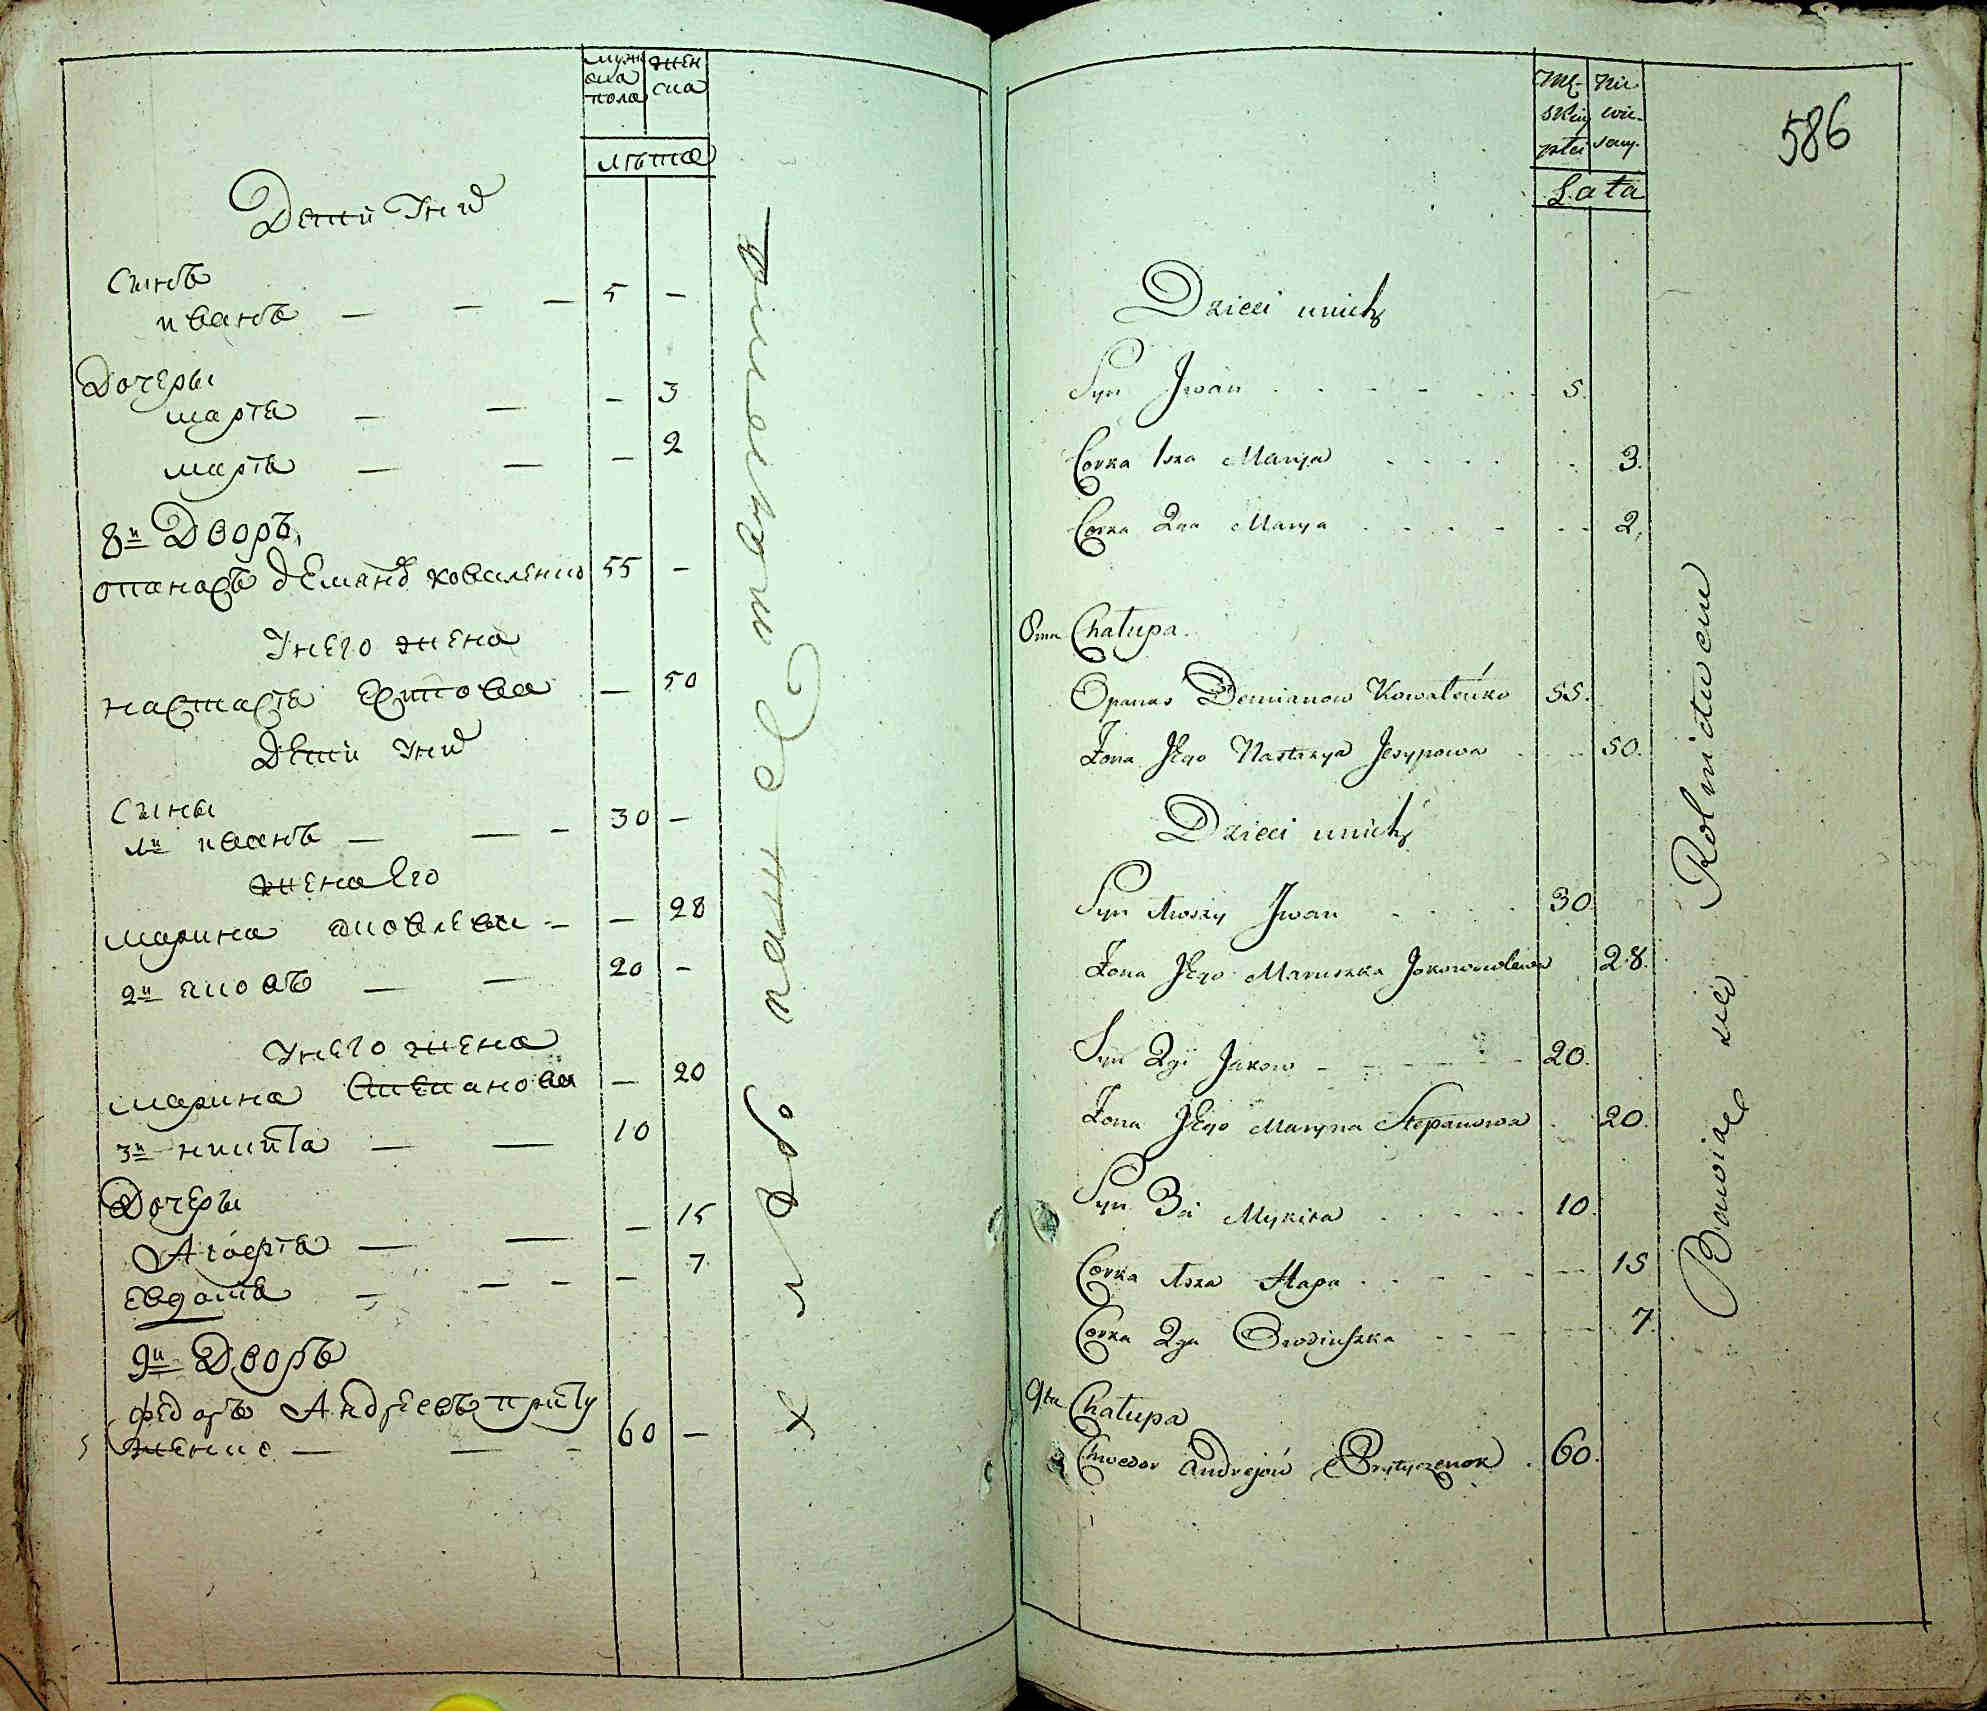 мужска пола
женска
лѣта
Дети У нихъ
Сынъ
иванъ — — — 5 —
Дочеры
марья — — — 3
марья — — — 2
8й Дворъ
опанасъ демяновъ коваленко 55 —
У него жена
настасья есипова — 50
Дети У нихъ
Сыны
1й иванъ — — — 30 —
жена Его
марина яковлева — — 28
2й яковъ — — 20 —
У него жена
марина Степанова — 20
3й никита — — 10
Дочеры
Агафья — — — 15
Евдотя — — — — 7
9й Дворъ
федоръ Андреевъ приты
женко — — — 60 —
хлебопашествомъ
Mę-
skiey
płci
Nie
wie-
sciey
Lata
586
Dzieci u nich
Syn Jwan 5.
Corka 1sza Marya 3.
Corka 2ga Marya 2.
8ma Chałupa.
Opanas Demianow Kowalenko 55.
Żona Jego Nastazya Jesypowa 50.
Dzieci u nich
Syn 1wszy Jwan 30
Żona Jego Maruszka 28.
Syn 2gi Jakow 20.
Żona Jego Maryna Stepanowa 20.
Syn 3ci Mykita 10.
Corka 1sza Hapa 15
Corka 2ga 7.
9ta Chałupa
Chwedor Andrejow Prytyczenok 60.
Bawiąc się Rolnictwem